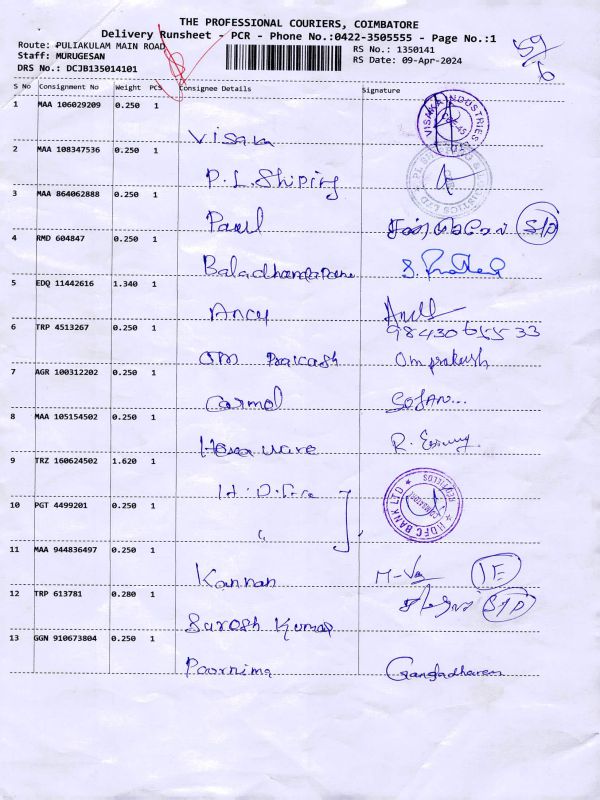 THE PROFESSIONAL COURIERS, COIMBATORE
Delivery Runsheet - PCR - Phone No.:0422-3505555 - Page No.:1
Route: PULIAKULAM MAIN ROAD
RS No.: 1350141
59
Staff: MURUGESAN
RS Date: 09-Apr-2024
DRS No.: DCJB135014101
S No Consignment No Weight PCS Consignee Details Signature
1 MAA 106029209 0.250 1 Visaka VISAKA INDUSTRIES
2 MAA 108347536 0.250 1 P.L.Shiping
3 MAA 864062888 0.250 1 Paul S/D
4 RMD 604847 0.250 1
5 EDQ 11442616 1.340 1 Ancy
98430 65533
6 TRP 4513267 0.250 1 Om Praicash Omprakash
7 AGR 100312202 0.250 1 Carmel SOJAN...
8 MAA 105154502 0.250 1 R.
9 TRZ 160624502 1.620 1 H.D.F.C HDFC BANK LTD
10 PGT 4499201 0.250 1 "
11 MAA 944836497 0.250 1 Kannan IE
12 TRP 613781 0.280 1 Suresh Kumar S/D
13 GGN 910673804 0.250 1 Poornima Gangadharan